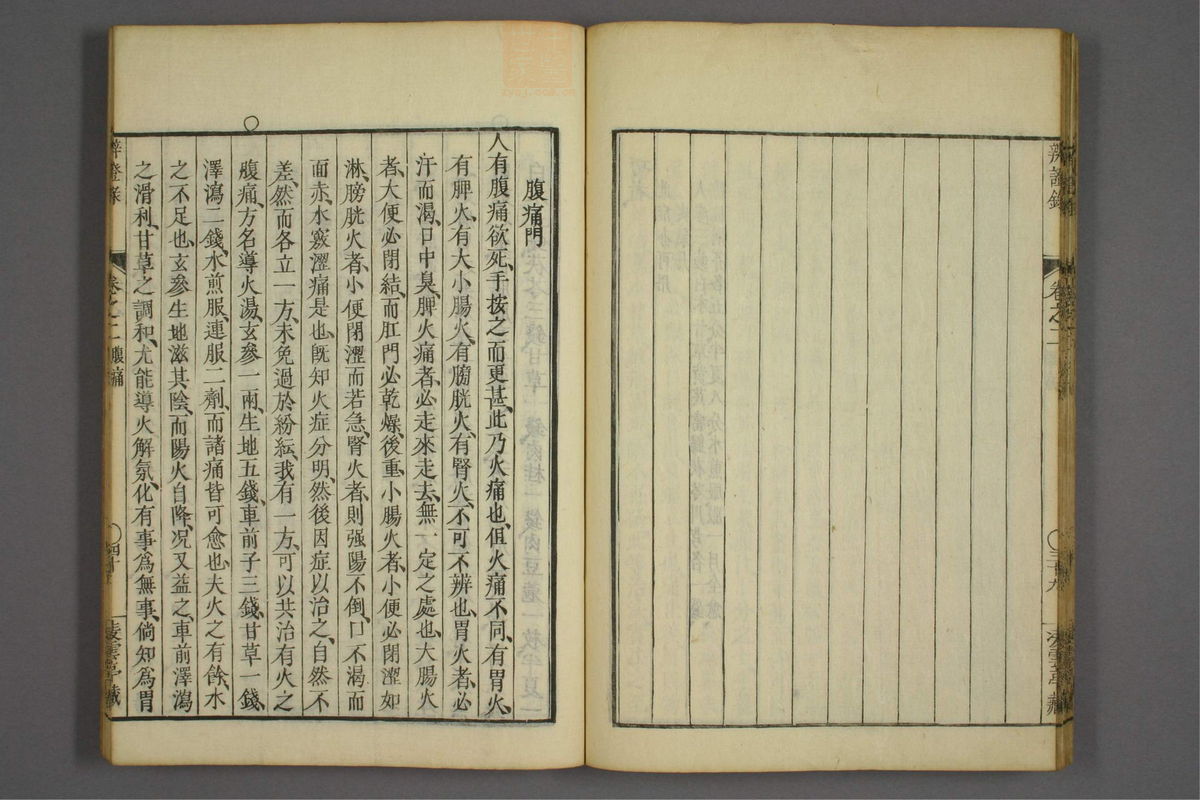 辨證錄
卷之二
三十九
腹痛門
人有腹痛欲死、手按之而更甚、此乃火痛也、但火痛不同、有胃火、
有脾火、有大小腸火、有膀胱火、有腎火、不可不辨也、胃火者、必
汗而渴、口中臭、脾火痛者、必走來走去、無一定之處也、大腸火
者、大便必閉結、而肛門必乾燥、後重、小腸火者、小便必閉澀如
淋、膀胱火者、小便閉澀而若急、腎火者、則强陽不倒、口不渴而
面赤、水竅澀痛是也、旣知火症分明、然後因症以治之、自然不
差、然而各立一方、未免過於紛紜、我有一方、可以共治有火之
腹痛、方名導火湯、玄參一兩、生地五錢、車前子三錢、甘草一錢、
澤瀉二錢、水煎服、連服二劑、而諸痛皆可愈也、夫火之有餘、水
之不足也、玄參生地滋其陰、而陽火自降、况又益之、車前澤瀉
之滑利、甘草之調和、尤能導火解氛、化有事爲無事、倘知爲胃
辨證錄
卷之二 腹痛
四十